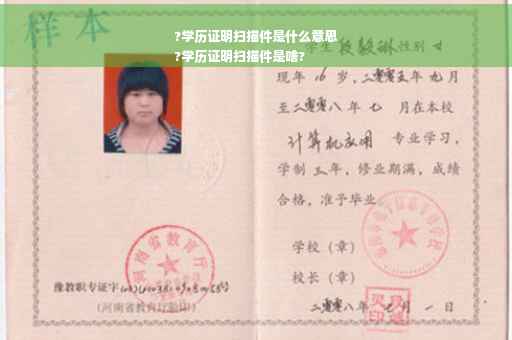 样本
?学历证明扫描件是什么意思
?学历证明扫描件是啥?
学生段毅琳性别女
现年16岁,二零零五年九月
至二零零八年七月在本校
计算机应用 专业学习,
学制三年,修业期满,成绩
合格,准予毕业
学校(章)
校长(章)
二零零八年 月一日
河南省教育厅
豫教职专证字
(河南省教育厅验印)